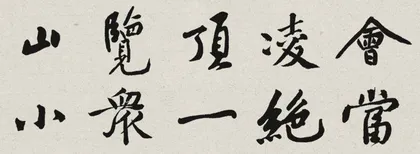 會當
凌絕
頂一
覽眾
山小